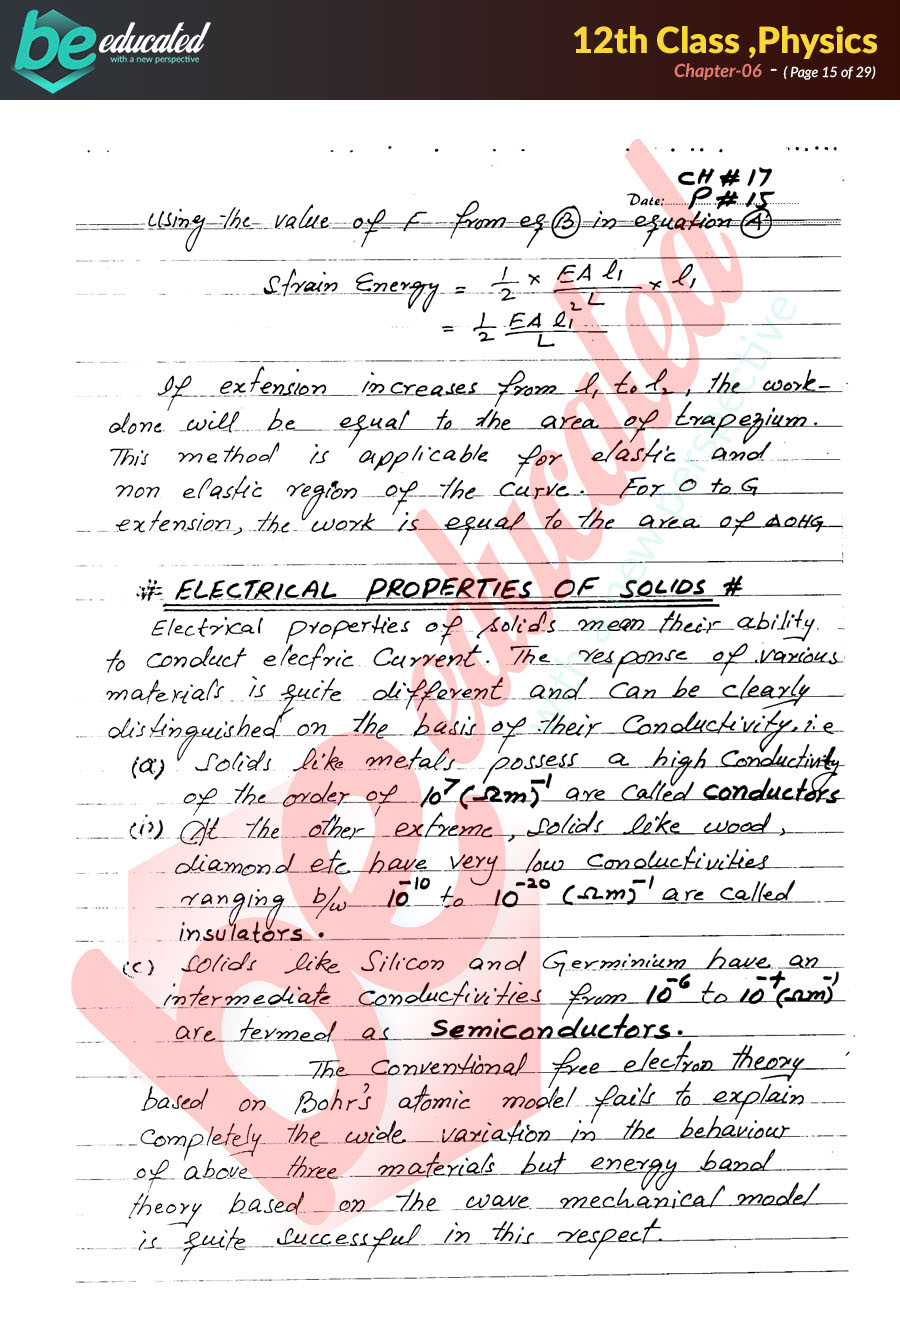 be educated
with a new perspective
12th Class ,Physics
Chapter-06 - ( Page 15 of 29)
CH # 17
Date: P # 15
Using the value of F from eq (B) in equation (A)
Strain Energy = 1/2 × EA l₁/L × l₁
= 1/2 EA l₁²/L
If extension increases from l₁ to l₂, the work-
done will be equal to the area of trapezium.
This method is applicable for elastic and
non elastic region of the curve. For O to G
extension, the work is equal to the area of ΔOHG
# ELECTRICAL PROPERTIES OF SOLIDS #
Electrical properties of solids mean their ability
to conduct electric current. The response of various
materials is quite different and can be clearly
distinguished on the basis of their Conductivity. i.e
(a) Solids like metals possess a high Conductivity
of the order of 10⁷ (Ωm)⁻¹ are called conductors
(b) At the other extreme, solids like wood,
diamond etc have very low conductivities
ranging b/w 10⁻¹⁰ to 10⁻²⁰ (Ωm)⁻¹ are called
insulators.
(c) Solids like Silicon and Germinium have an
intermediate conductivities from 10⁻⁶ to 10⁻⁴ (Ωm)⁻¹
are termed as Semiconductors.
The Conventional free electron theory
based on Bohr's atomic model fails to explain
completely the wide variation in the behaviour
of above three materials but energy band
theory based on the wave mechanical model
is quite successful in this respect.
be educated
with a new perspective